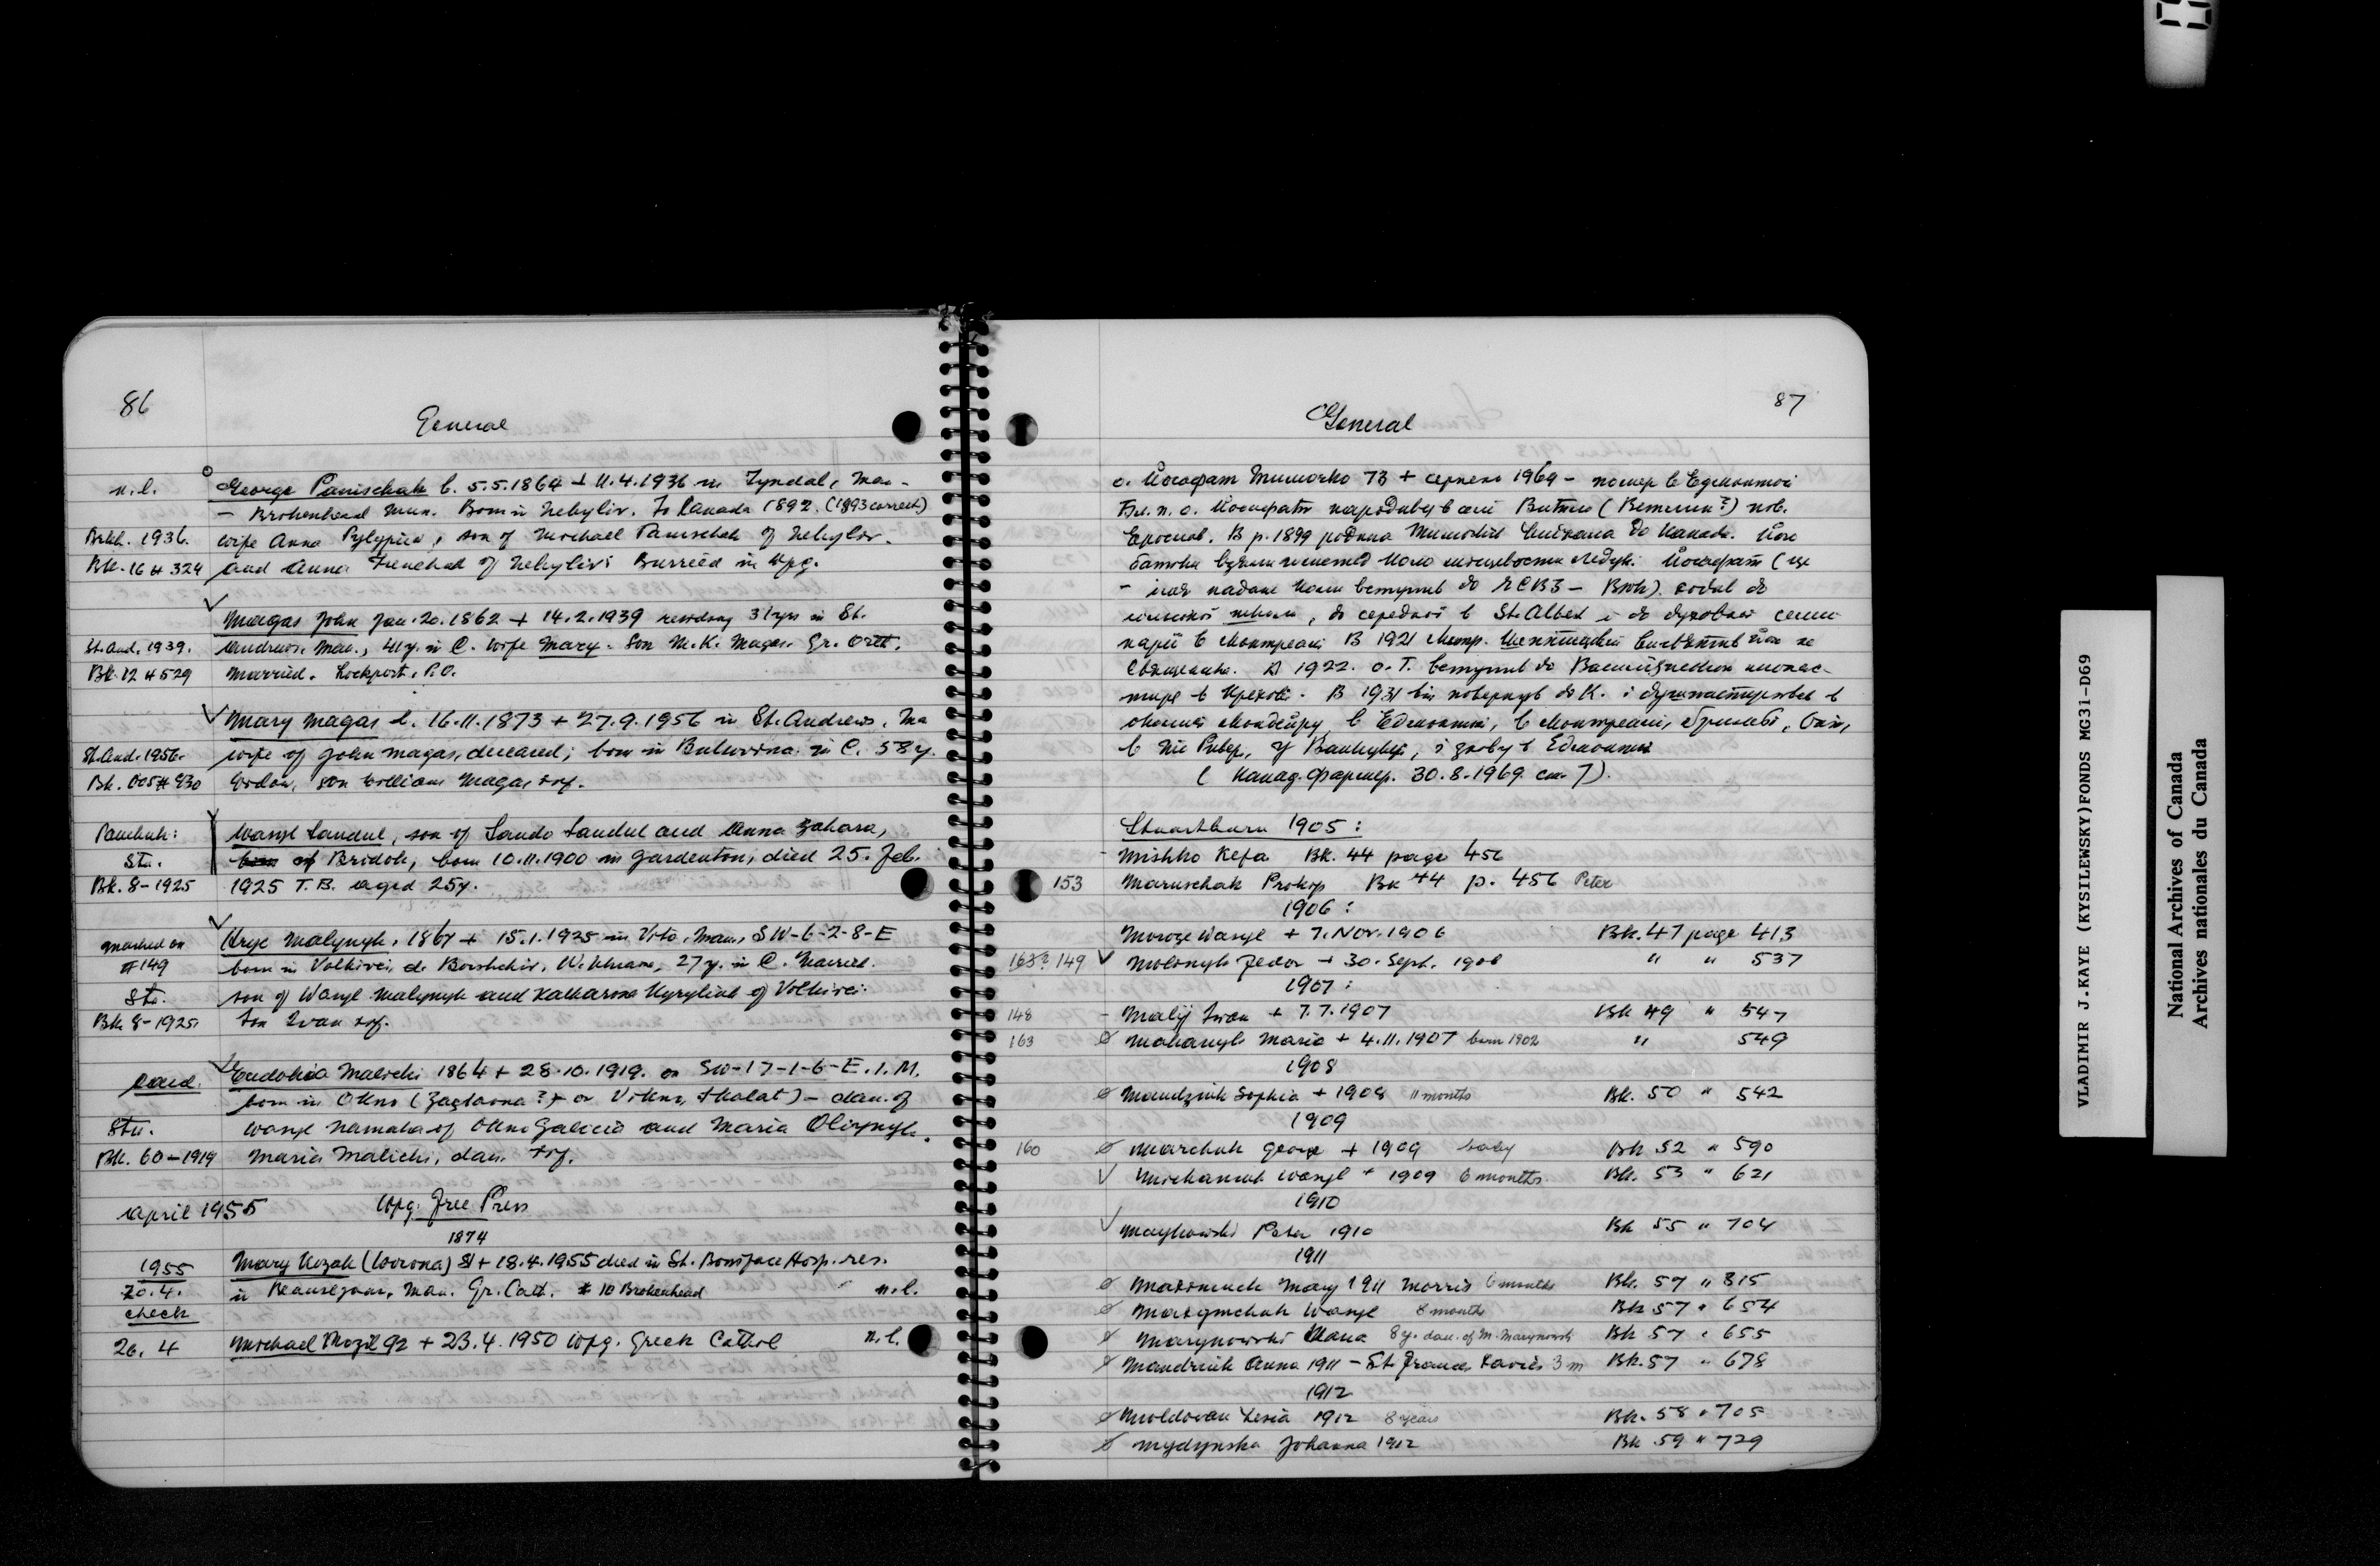 86
General
n.l. George Panischak b. 5.5.1864 + 11.4.1936 in Tyndal, Man-
- Brokenhead Mun. Born in Nebyliv. To Canada 1892. (1893 correct)
Brkh. 1936. wife Anna Pylypiw, son of Michael Panischak of Nebyliv.
Bk. 16 # 324 and Anna of Nebyliv. Burried in Wpg.
Magas John Jan. 20. 1862 + 14.2.1939 31 yrs in St.
St. And. 1939. Andrews, Man., 41 y. in C. wife Mary. Son M.K. Magas. Gr. Orth.
Bk. 12 # 529 Married. Lockport, P.O.
Mary Magas b. 16.11.1873 + 27.9.1956 in St. Andrews, Ma
St. And. 1956. wife of John Magas, deceased; born in Bukovina. in C. 58 y.
Bk. 005 # 930 Widow, son William Magas
Panchuk: Wasyl Sandul, son of Sando Sandul and Anna Zahara,
Stu. born of Bridok, born 10.11.1900 in Gardenton, died 25. Feb.
Bk. 8-1925 1925 T.B. aged 25y.
marked on Hryc Malynyk, 1867 + 15.1.1925 in Vita, Man., SW-6-2-8-E
#149 born in Volkivci, d. Borshchiv, W. Ukraine, 27 y. in C. Married.
Stu. son of Wasyl Malynyk and Katharina Kyryliuk of Volkivci.
Bk 8-1925. Son Ivan
card. Eudokia Malichi 1864 + 28.10.1919. on SW-17-1-6-E.1.M.
born in Okno (? or Vikno, Skalat) - dau. of
Stu. Wasyl Namaka of Okno Galicia and Maria Oliynyk.
Bk. 60-1919 Maria Malichi, dau.
April 1955 Wpg. Free Press
1874
1955 Mary Kozak (Worona) 81 + 18.4.1955 died in St. Boniface Hosp. res.
20.4. in Beausejour, Man. Gr. Cath. # 10 Brokenhead n.l.
check
26.4 Michael Mozil 92 + 23.4.1950 Wpg. Greek Cathol n.l.
87
General
о. Йосафат Тимочко 73 + серпень 1969 - помер в Едмонтоні
Бл. п. о. Йосафат народився в селі Витки ( ?) пов.
Ярослав. В р. 1899 родина Тимочків виїхала до Канади. Його
батьки взяли гомстед коло місцевости Ледук. Йосафат (це
- імя надане коли вступив до ЧСВВ - ВЮК). ходив до
школи, до середної в St. Albert і до духовної семи-
нарії в Монтреалі В 1921 Митр. Шептицький висвятив його на
священика. В 1922. о. Т. вступив до Василіянського монас-
тиря в Крехові. В 1931 він повернув до К. і душпастирював в
околиці Мондейру, в Едмонтоні, в Монтреалі, Онт,
в Ріверс, у Ванкувері, і знову в Едмонтоні
( Канад. Фармер. 30.8.1969. ст. 7).
Stuartburn 1905:
- Mishko Kefa Bk. 44 page 456
153 Maruschak Prokop Bk 44 p. 456 Peter
1906:
Moroze Wasyl + 7. Nov. 1906 Bk. 47 page 413
163? 149 Molonyk Fedor + 30. Sept. 1906 " " 537
1907:
148 - Malij Iwan + 7.7.1907 Bk 49 " 547
163 Mahanyk Maria + 4.11.1907 born 1902 " 549
1908
Mandziuk Sophia + 1908 11 months Bk. 50 " 542
1909
160 Marchuk George + 1909 baby Bk 52 " 590
Wasyl + 1909 6 months. Bk. 53 " 621
1910
Maykowski Peter 1910 Bk 55 " 704
1911
Mary 1911 Morris 6 months Bk. 57 " 815
Wasyl 8 months Bk 57 " 654
Marynowski 8 y. dau. of M. Marynowski Bk 57 " 655
Mandziuk Anna 1911 - St. Frances Xavier 3 m Bk. 57 " 678
1912
Moldovan Lesia 1912 8 years Bk. 58 " 705
Mydynska Johanna 1912 Bk 59 " 729
VLADIMIR J.KAYE (KYSILEWSKY)FONDS MG31-D69
National Archives of Canada
Archives nationales du Canada